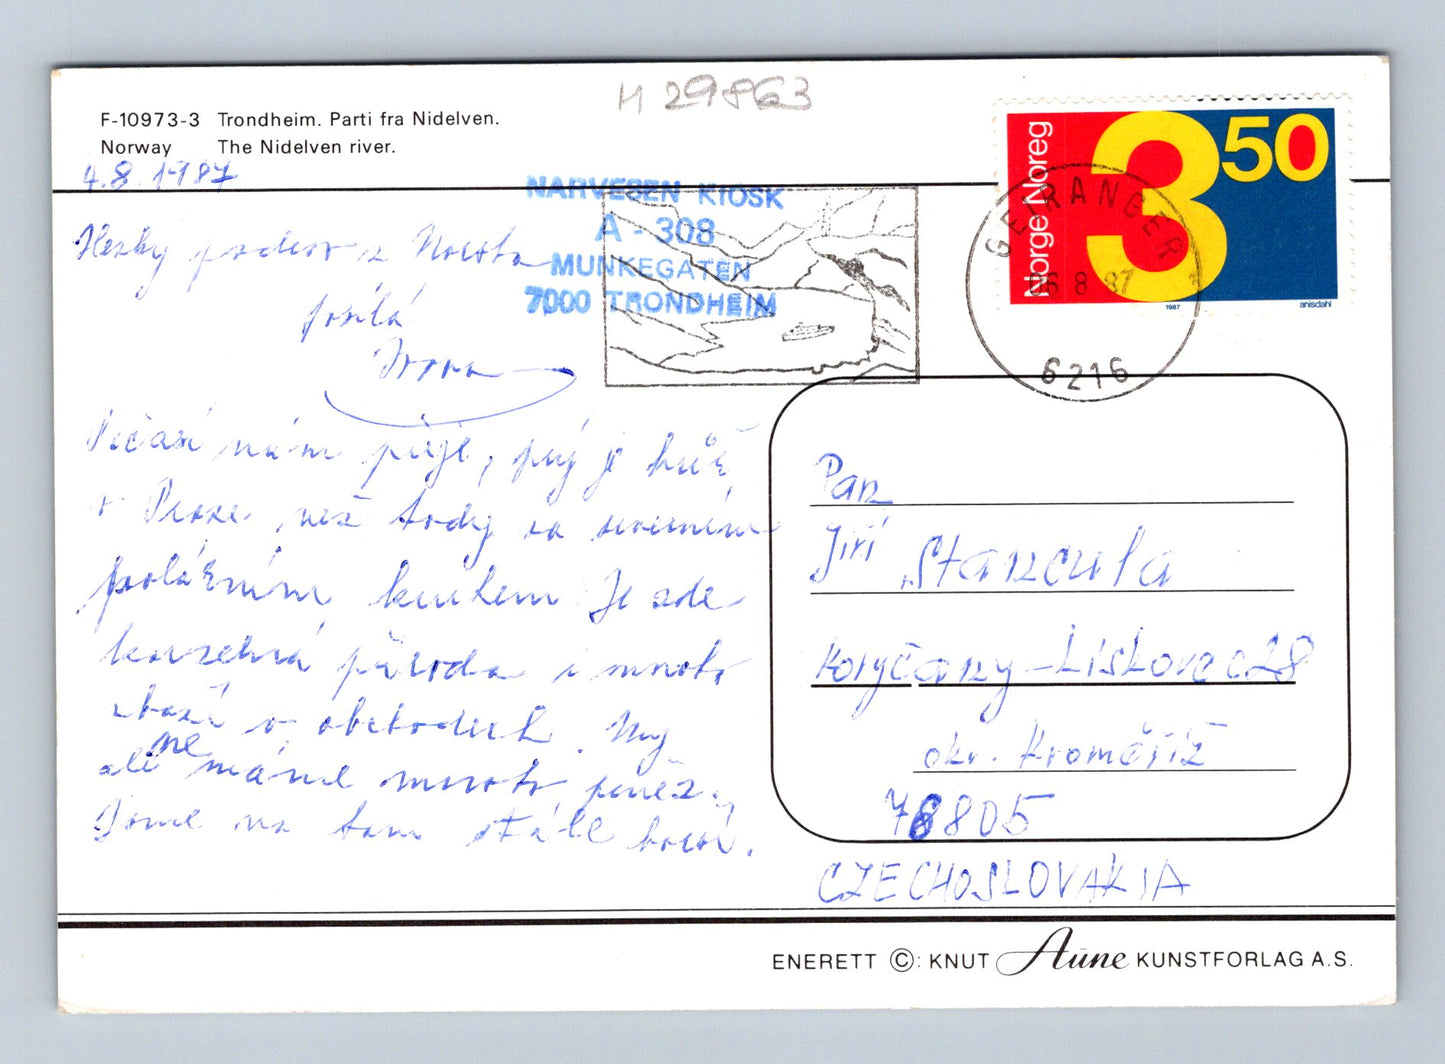 H 29863
F-10973-3 Trondheim. Parti fra Nidelven.
Norway The Nidelven river.
4.8.1987
NARVESEN KIOSK
A - 308
MUNKEGATEN
7000 TRONDHEIM
Norge Noreg
350
1987
anisdahl
GEIRANGER
06 8 87
6216
Hezký pozdrav z Norska
posílá
Ivona
Počasí nám přeje, prý je hůř
v Praze, než tady za severním
polárním kruhem. Je zde
kouzelná příroda i mnoho
zboží v obchodech. My
ale nemáme mnoho peněz.
Jsme na tom stále
Pan
Jiří Stancula
Koryčany-Lískovec 28
okr. Kroměříž
76805
CZECHOSLOVAKIA
ENERETT ©: KNUT Aune KUNSTFORLAG A.S.